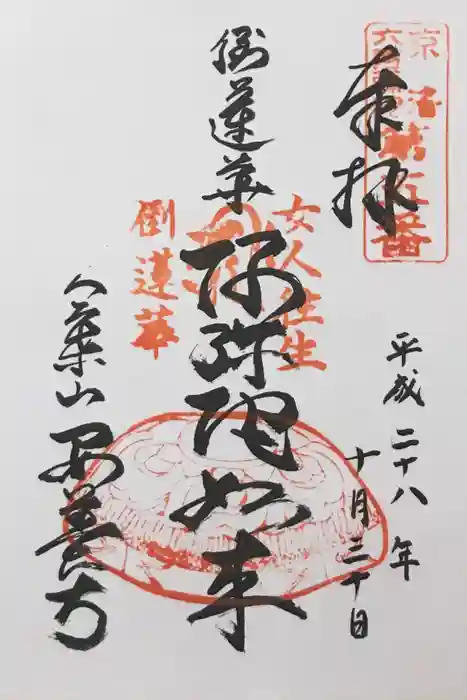 奉拝
平成二十八年
十月三十日
女人往生
倒蓮華
阿弥陀如来
倒蓮華
八葉山
安養寺